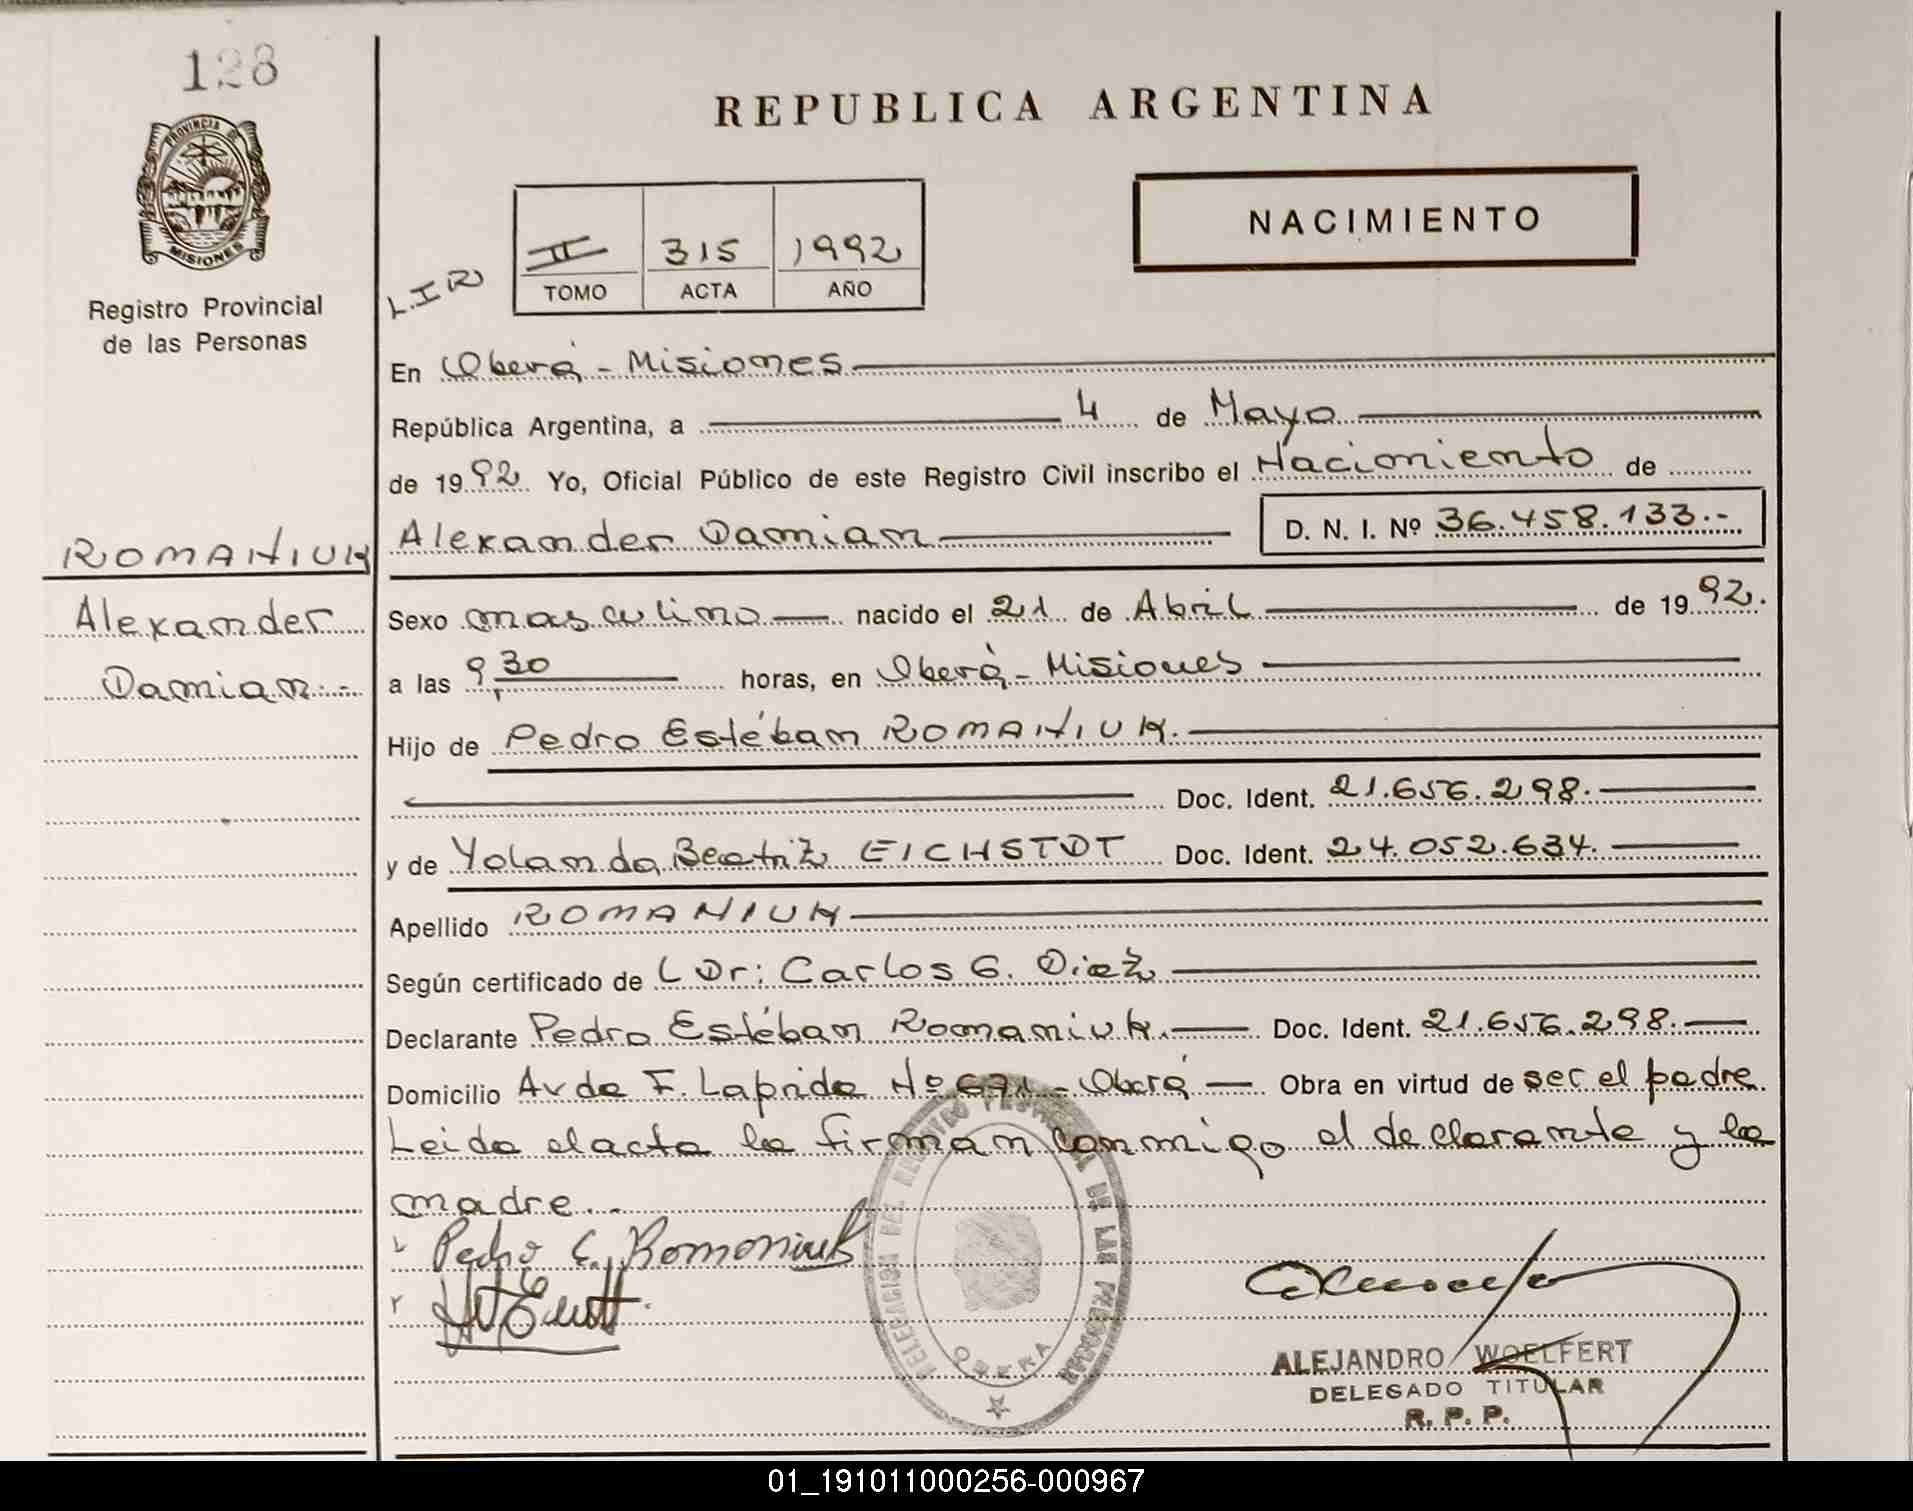 128
PROVINCIA DE
MISIONES
Registro Provincial
de las Personas
REPUBLICA ARGENTINA
NACIMIENTO
II 315 1992
TOMO ACTA AÑO
En Oberá - Misiones
República Argentina, a 4 de Mayo
de 1992 Yo, Oficial Público de este Registro Civil inscribo el Nacimiento de
ROMANIUK
Alexander
Damian.-
Alexander Damian D. N. I. Nº 36.458.133.-
Sexo masculino nacido el 21 de Abril de 1992.
a las 9,30 horas, en Oberá - Misiones
Hijo de Pedro Estéban ROMANIUK.
Doc. Ident. 21.656.298.
y de Yolanda Beatriz EICHSTDT Doc. Ident. 24.052.634.
Apellido ROMANIUK
Según certificado de L Dr: Carlos G. Diaz
Declarante Pedro Estéban Romaniuk. Doc. Ident. 21.656.298.
Domicilio Avda F. Laprida Nº 671 - Oberá Obra en virtud de ser el padre
Leida el acta la firman conmigo el declarante y la
madre..
Pedro E. Romaniuk
DELEGACION DEL REGISTRO PROVINCIAL DE LAS PERSONAS
OBERA
ALEJANDRO WOELFERT
DELEGADO TITULAR
R. P. P.
01_191011000256-000967